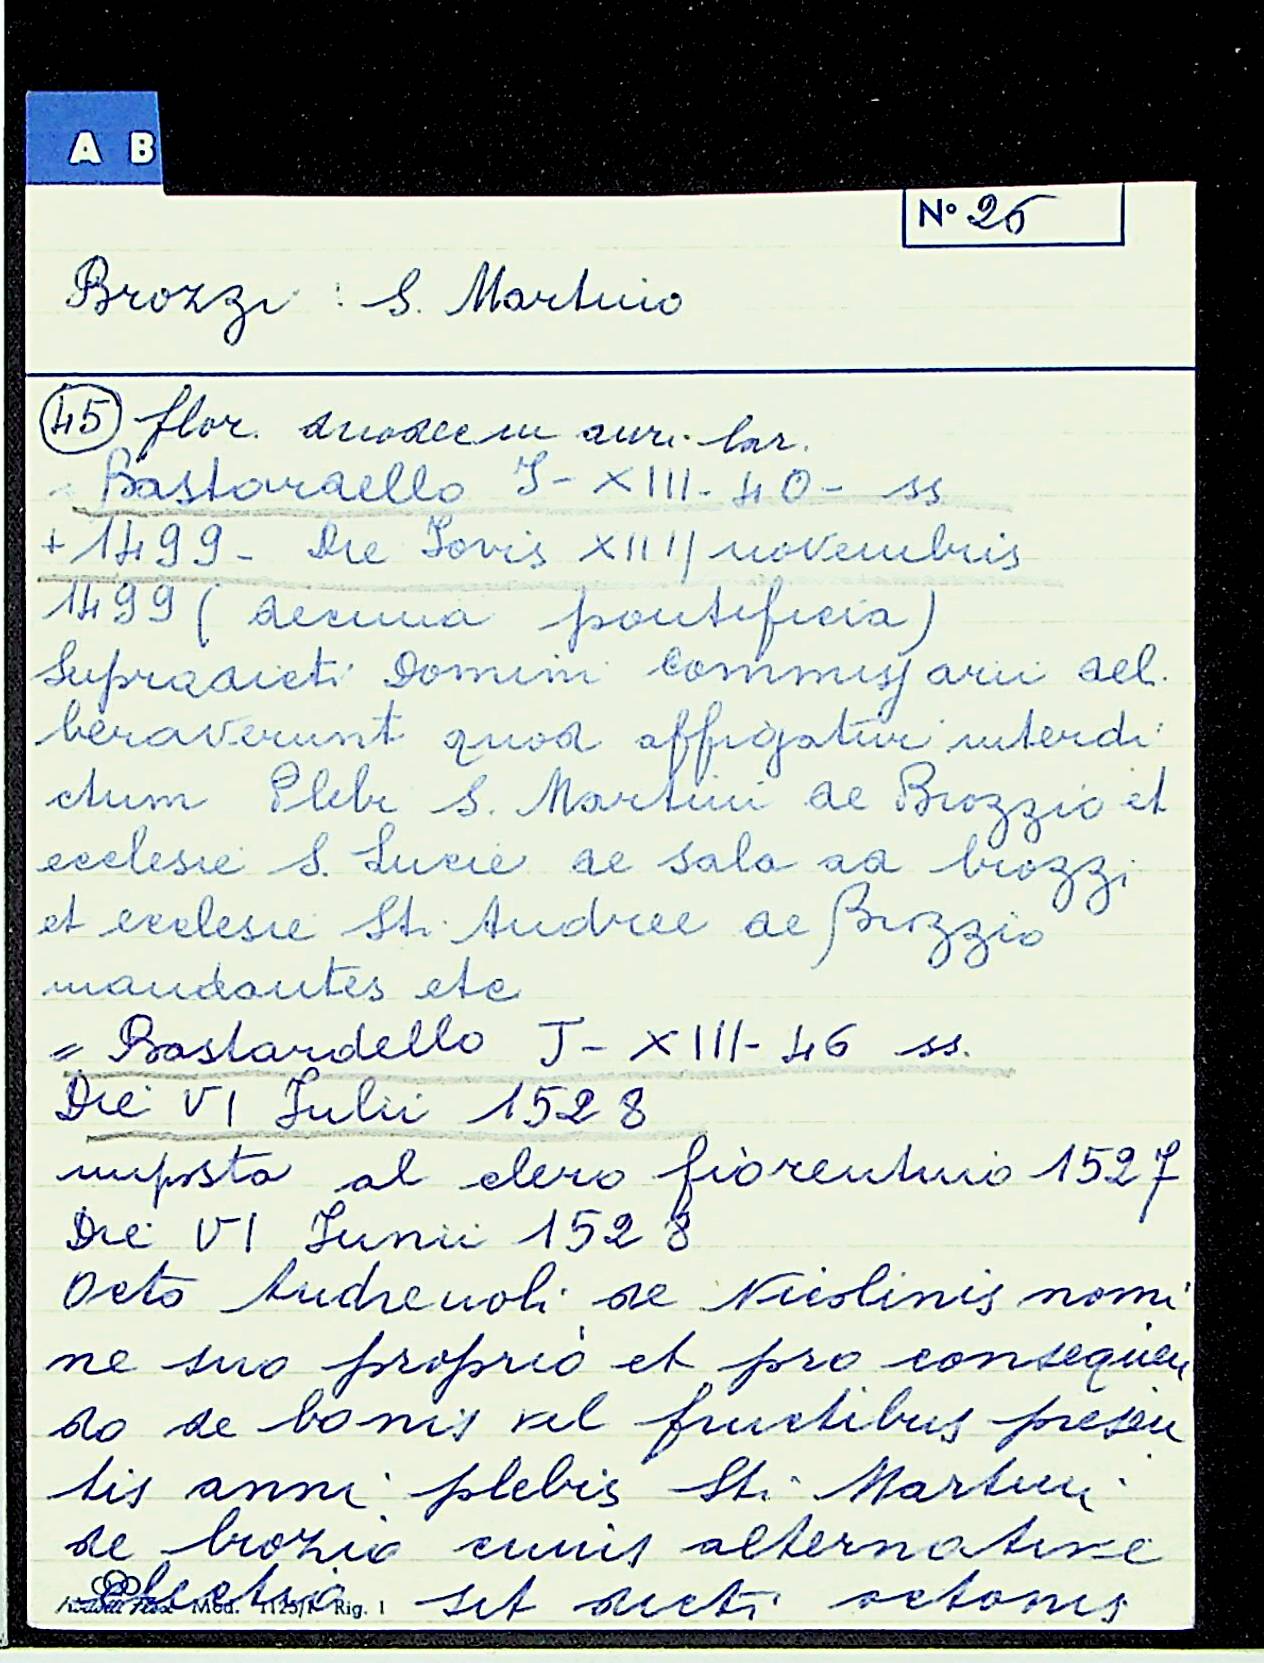 A B
N° 26
Brozzi : S. Martino
45 flor. duodecim auri lar.
= Bastardello J- XIII- 40- ss
+ 1499- Die Jovis XIIII novembris
1499 ( decima pontificia)
Supradicti Domini Commissarii del.
beraverunt quod affigatur interdi
ctum Plebi S. Martini de Brozzio et
ecclesie S. Lucie de Sala ad brozzi
et ecclesie Sti Andree de Brozzio
mandantes etc
= Bastardello J- XIII- 46 ss.
Die VI Julii 1528
imposta al clero fiorentino 1527
Die VI Junii 1528
Octo Andreuoli de Nicolinis nomi
ne suo proprio et pro consequen
do de bonis vel fructibus presen
tis anni plebis Sti Martini
de brozio cuius alternative
electio sit dicti octonis
Mod. 1125/1 Rig. 1